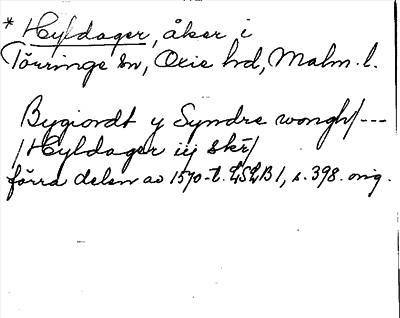 * Hyldager, åker i
Törringe sn, Oxie hd, Malm. l.
Bygiordt y Syndre wongh/---
/Hyldager iij skr/
förra delen av 1570-t. LSLB 1, s. 398. orig.